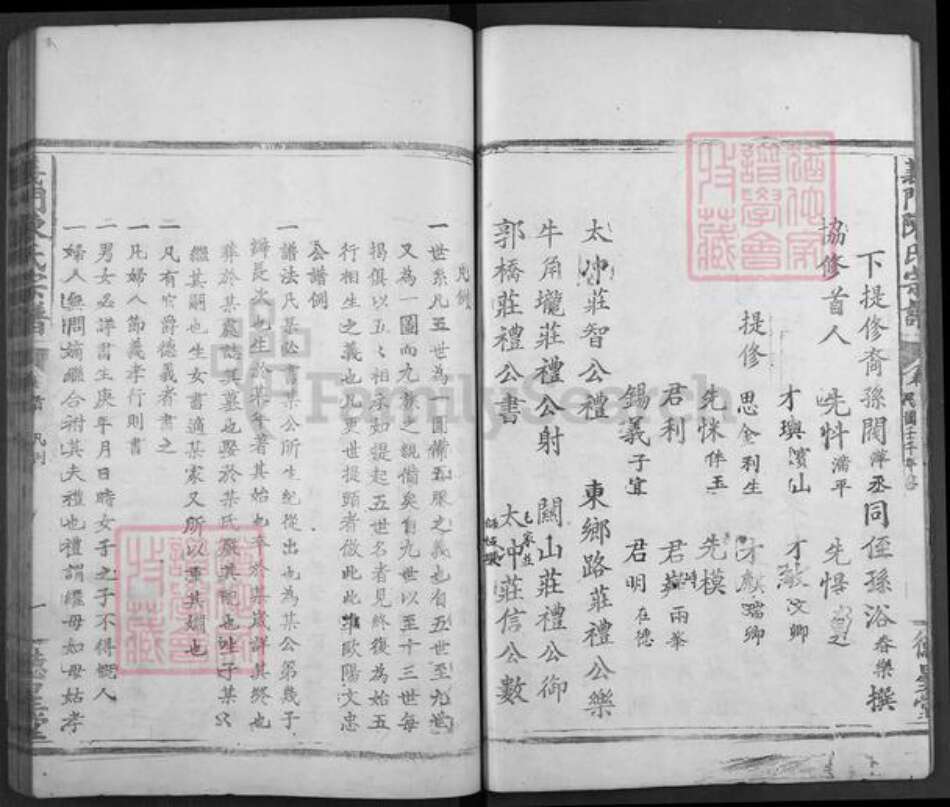 義門陳氏宗譜
民國
下提修裔孫閏萍丞同侄孫浴春樂撰
協修首人
先牪濡平 先悟
才璵濱仙 才敦文卿
提修
思金利生 才麒瑞卿
先怺伴玉 先模
君利 君 雨峯
錫義子宜 君明在德
太冲莊智公禮 東鄉路莊禮公樂
牛角壠莊禮公射 關山莊禮公御
郭橋莊禮公書 太冲莊信公數
凡例
一世系凡五世為一圖備五服之義也自五世至九世
又為一圖而九族之親備矣自九世以至十三世每
揭俱以五五相承如提起五世名者見終復為始五
行相生之義也凡更世提頭者倣此此準歐陽文忠
公譜例
一譜法氏某訟書某公所生紀從出也為某公第幾子
辨是次也生於某年著其始也卒於某歲詳其終也
葬於某處誌其墓也娶於某氏
繼其嗣也生女書適某家又所以重其婣也
一凡有官爵德義者書之
一凡婦人節義孝行則書
一男女必詳書生庚年月日時女子之子不得概入
一婦人無問嫡繼合祔其夫禮也禮謂繼母如母姑孝
凡例
一
德星堂
FamilySearch